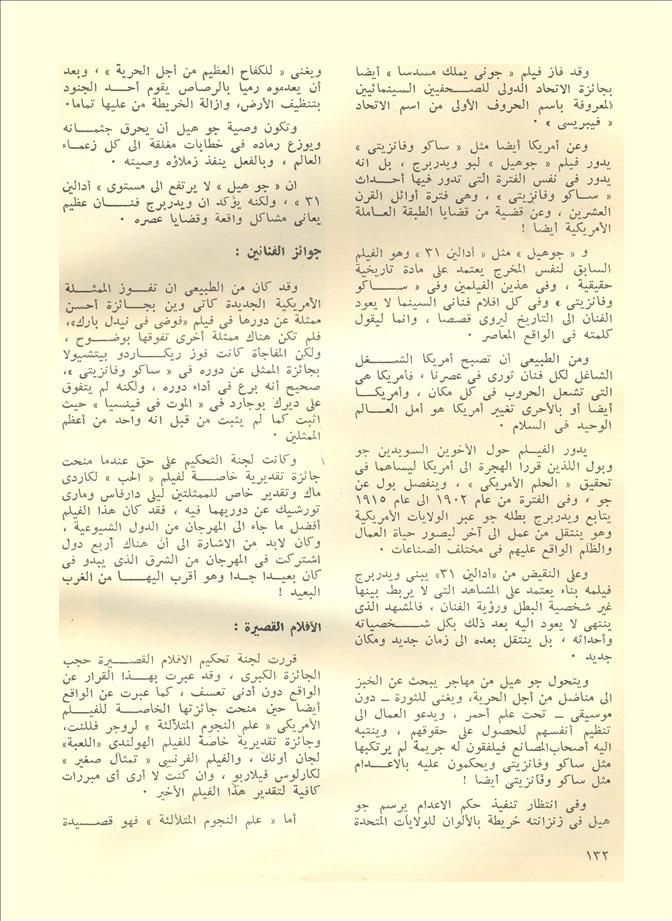 وقد فاز فيلم « جونى يملك مسدسا » أيضا
بجائزة الاتحاد الدولى للصـــحفيين السينمائيين
المعروفة باسم الحروف الأولى من اسم الاتحاد
« فيبريسى » ٠
وعن أمريكا أيضا مثل « ساكو وفانزيتى »
يدور فيلم « جوهيل » لبو ويدربرج ، بل انه
يدور فى نفس الفترة التى تدور فيها أحــداث
« ســاكو وفانزيتى » ، وهى فترة أوائل القرن
العشرين ، وعن قضية من قضايا الطبقة العــاملة
الأمريكية أيضا !
و « جوهيل » مثل « أدالين ٣١ » وهو الفيلم
السابق لنفس المخرج يعتمد على مادة تاريخية
حقيقية ، وفى هذين الفيلمين وفى « ســـاكو
وفانزيتى » وفى كل افلام فنانى السينما لا يعود
الفنان الى التاريخ ليروى قصصا ، وانما ليقول
كلمته فى الواقع المعاصر ٠
ومن الطبيعى أن تصبح أمريكا الشـــغل
الشاغل لكل فنان ثورى فى عصرنا ، فأمريكا هى
التى تشعل الحروب فى كل مكان ، وأمريكـــا
أيضا أو بالأحرى تغيير أمريكا هو أمل العـــالم
الوحيد فى السلام ٠
يدور الفيـــلم حول الأخوين السويدين جو
وبول اللذين قررا الهجرة الى أمريكا ليساهما فى
تحقيق « الحلم الأمريكى » ، وينفصل بول عن
جو ، وفى الفترة من عام ١٩٠٢ الى عام ١٩١٥
يتابع ويدربرج بطله جو عبر الولايات الأمريكية
وهو ينتقل من عمل الى آخر ليصور حياة العمال
والظلم الواقع عليهم فى مختلف الصناعات ٠
وعلى النقيض من «أدالين ٣١» يبنى ويدربرج
فيلمه بناء يعتمد على المشاهد التى لا يربط بينها
غير شخصية البطل ورؤية الفنان ، فالمشهد الذى
ينتهى لا يعود اليه بعد ذلك بكل شـــخصياته
وأحداثه ، بل ينتقل بعده الى زمان جديد ومكان
جديد ٠
ويتحول جو هيل من مهاجر يبحث عن الخبز
الى مناضل من أجل الحرية، ويغنى للثورة ــ دون
موسيقى ــ تحت علم أحمر ، ويدعو العمال الى
تنظيم أنفسهم للحصول على حقوقهم ، وينتبه
اليه أصحاب المصانع فيلفقون له جريمة لم يرتكبها
مثل ساكو وفانزيتى ويحكمون عليه بالاعــدام
مثل ساكو وفانزيتى أيضا !
وفى انتظار تنفيذ حكم الاعدام يرسم جو
هيل فى زنزانته خريطة بالألوان للولايات المتحدة
ويغنى « للكفاح العظيم من أجل الحرية » ، وبعد
أن يعدموه رميا بالرصاص يقوم أحـــد الجنود
بتنظيف الأرض، وازالة الخريطة من عليها تماما٠
وتكون وصية جو هيل أن يحرق جثمـــانه
ويوزع رماده فى خطابات مغلقة الى كل زعمـاء
العالم ، وبالفعل ينفذ زملاؤه وصيته ٠
ان « جو هيل » لا يرتفع الى مستوى « أدالين
٣١ » ، ولكنه يؤكد ان ويدربرج فنـــان عظيم
يعانى مشاكل واقعة وقضايا عصره ٠
جوائز الفنانين :
وقد كان من الطبيعى ان تفــوز الممثـــلة
الأمريكية الجديدة كاتى وين بجـــائزة أحسن
ممثلة عن دورها فى فيلم «فوضى فى نيدل بارك»،
فلم تكن هناك ممثلة أخرى تفوقها بوضــوح ،
ولكن المفاجأة كانت فوز ريكـــاردو بيتشيولا
بجائزة الممثل عن دوره فى « ساكو وفانزيتى »،
صحيح أنه برع فى أداء دوره ، ولكنه لم يتفوق
على ديرك بوجارد فى « الموت فى فينسيا » حيث
اثبت كما لم يثبت من قبل انه واحد من أعظم
الممثلين ٠
وكانت لجنة التحكيم على حق عندما منحت
جائزة تقديرية خاصــة لفيلم « الحب » لكاردى
ماك وتقدير خاص للممثلتين ليلى دارفاس ومارى
تورشيك عن دوريهما فيه ، فقد كان هذا الفيلم
أفضل ما جاء الى المهرجان من الدول الشيوعية ،
وكان لابد من الاشارة الى أن هناك أربع دول
اشتركت فى المهرجان من الشرق الذى يبدو فى
كان بعيــدا جــدا وهو أقرب اليهـــا من الغرب
البعيد !
الأفلام القصيرة :
قررت لجنة تحكيم الافلام القصـــيرة حجب
الجائزة الكبرى ، وقد عبرت بهــذا القرار عن
الواقع دون أدنى تعسف ، كما عبرت عن الواقع
أيضا حين منحت جائزتها الخاصــة للفيــلم
الأمريكى « علم النجوم المتلألئة » لروجر فللنت،
وجائزة تقديرية خاصة للفيلم الهولندى «اللعبة»
لجان أونك ، والفيلم الفرنسى « تمثال صغير »
لكارلوس فيلاربو ، وان كنت لا أرى أى مبررات
كافية لتقدير هذا الفيلم الأخير ٠
أما « علم النجوم المتلألئة » فهو قصــيدة
١٣٢